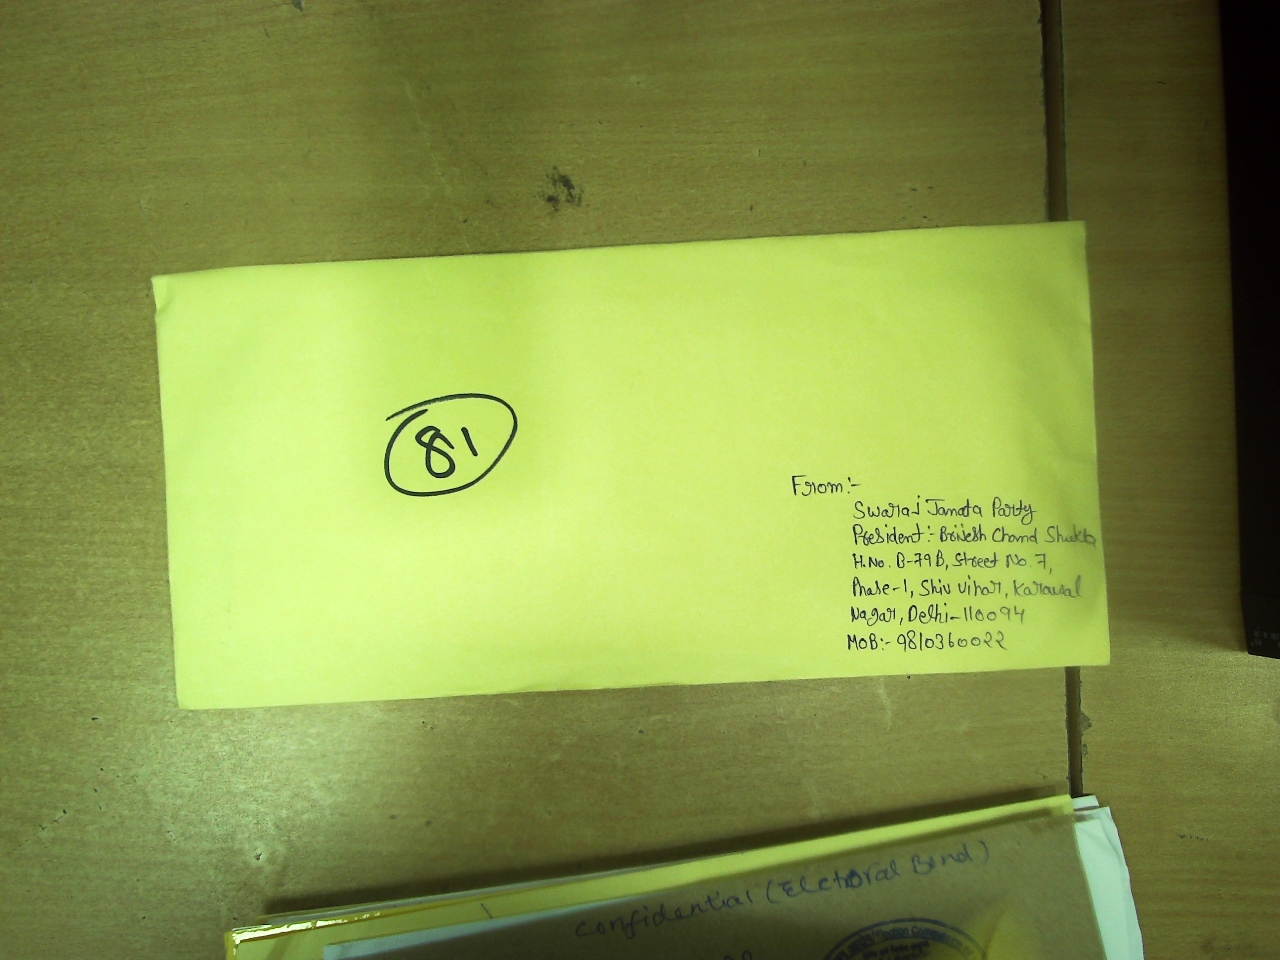 81
From:-
Swaraj Janata Party
President:- Brijesh Chand Shukla
H.No. B-79B, Street No. 7,
Phase-1, Shiv Vihar, Karawal
Nagar, Delhi-110094
MOB:- 9810360022
Confidential (Electoral Bond)
Election Commission